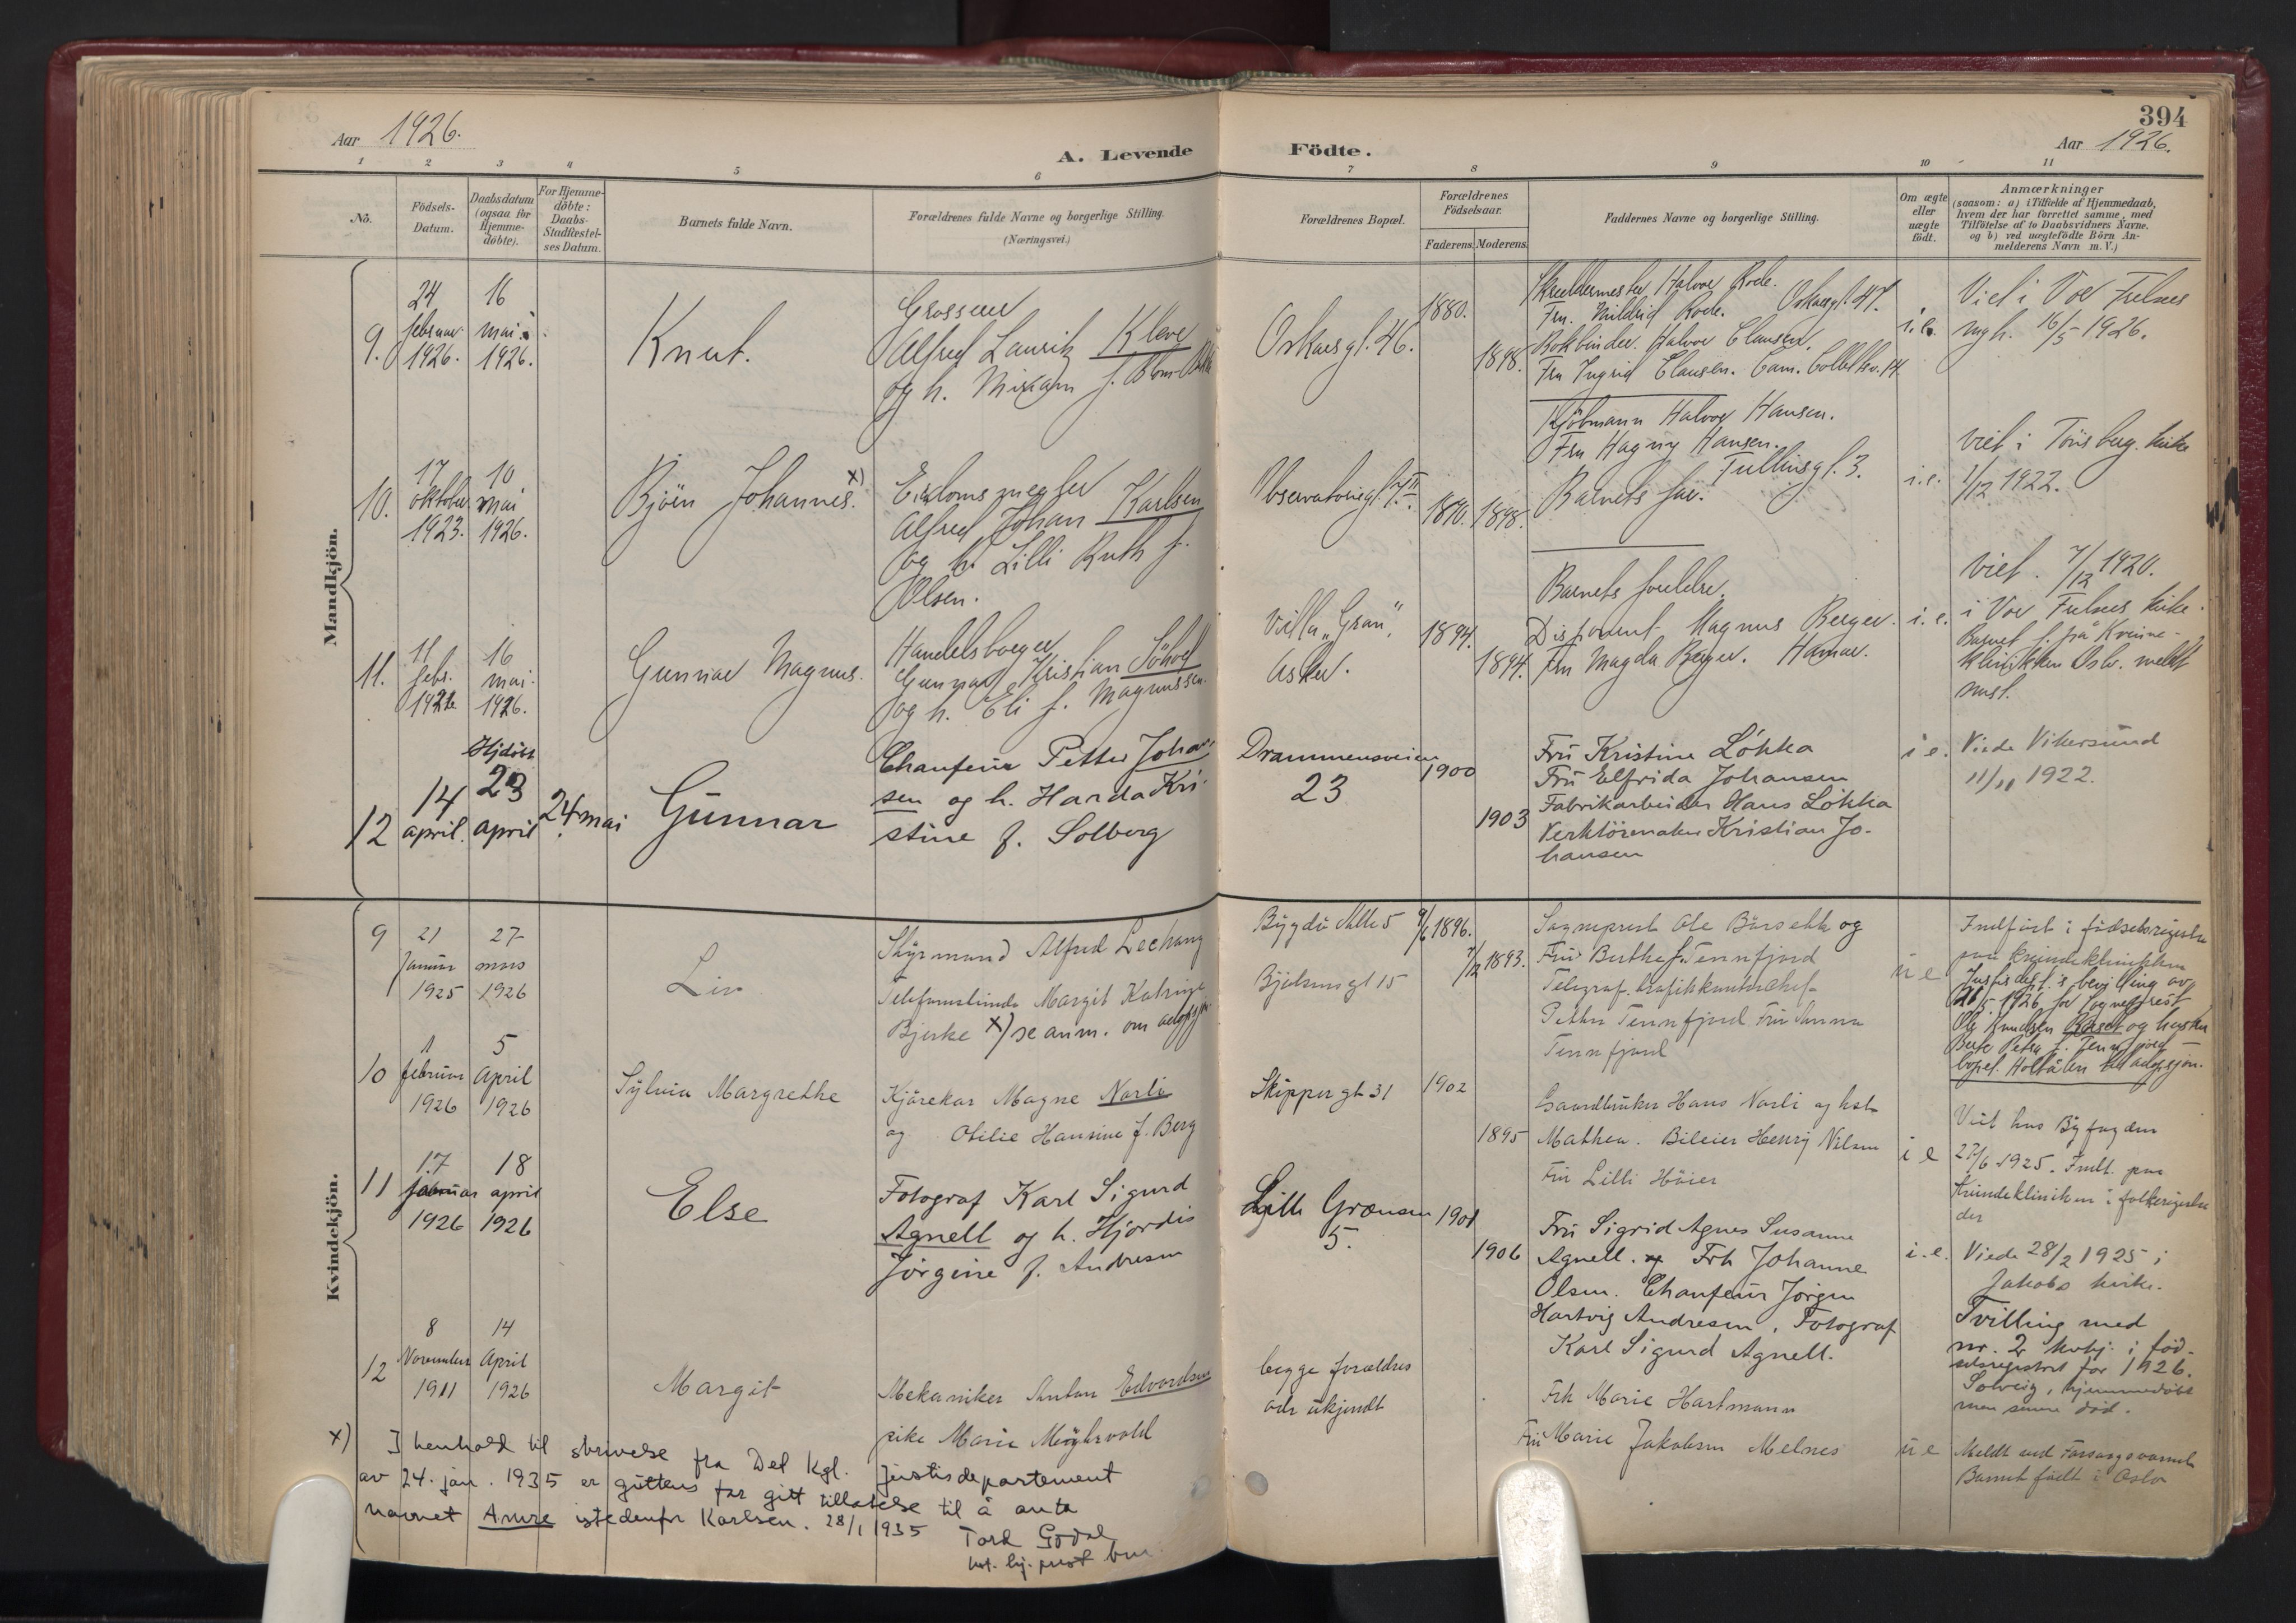 394
Aar 1926.
A. Levende Födte.
Aar 1926.
1 2 3 4 5 6 7 8 9 10 11
No.
Födsels-
Datum.
Daabsdatum
(ogsaa for
Hjemme-
döbte).
For Hjemme-
döbte:
Daabs-
Stadfæstel-
ses Datum.
Barnets fulde Navn.
Forældrenes fulde Navne og borgerlige Stilling.
(Næringsvei.)
Forældrenes Bopæl.
Forældrenes
Födselsaar.
Faderens. Moderens.
Faddernes Navne og borgerlige Stilling.
Om ægte
eller
uægte
födt.
Anmærkninger
(saasom: a) i Tilfælde af Hjemmedaab,
hvem der har forrettet samme, med
Tilföielse af to Daabsvidners Navne.
og b) ved uægtefödte Börn An-
melderens Navn m. V.)
Mandkjön.
9.
24
februar
1926.
16
mai
1926.
Knut.
Grosserer
Alfred Lauritz Kleve
og h. Mirjam f.
Oskarsgt. 46.
1880.
1898.
Skreddermester Halvor Rode.
Fru Mildrid Rode. Oskarsgt. 47.
Bokbinder Halvor Clausen.
Fru Ingrid Clausen. Cam. Collettsv. 14
i. e.
Viet i Vor Frelsers
mgh. 16/5 1926.
10.
17
oktober
1923.
10
mai
1926.
Björn Johannes. x)
Eiendomsmegler
Alfred Johan Karlsen
og h. Lilli Ruth f.
Olsen.
Observatoriegt.
1890. 1898.
Kjöbmann Halvor Hansen.
Fru Hagny Hansen.
Tullinsgt. 3.
Barnets far.
i. e.
viet i Tönsberg kirke
1/12 1922.
11.
11
febr.
1926
16
mai
1926.
Gunnar Magnus.
Handelsborger
Gunnar Kristian Söhol
og h. Eli f. Magnussen.
Villa "Gran",
Asker.
1894.
1894.
Barnets foreldre.
Disponent Magnus Berger.
Fru Magda Berger. Hamar.
i. e.
viet. 7/12 1920.
i Vor Frelsers kirke.
Barnet f. på Kvinne-
klinikken Oslo. meldt
12
14
april.
Hjdöbt
23
april
24 mai
Gunnar
Chauffeur Petter Johan-
sen og h. Harda Kri-
stine f. Solberg
Drammensveien
23
1900
1903
Fru Kristine Lökka
Fru Elfrida Johansen
Fabrikarbeider Hans Lökka
Verktöimaker Kristian Jo-
hansen
i e.
Viede Vikersund
11/11 1922.
Kvindekjön.
9
21
Januar
1925
27
mars
1926
Liv
Styrmand Alfred Lechang
Telefonistinde Margit Katrine
Bjerke x) se anm. om adopsjon
Bygdö Alle 5
Bjölsengt 15
9/6 1896.
7/12 1893.
Sogneprest Ole Börseth og
Fru Berthe f. Tennfjord
Telegraf. trafikkontorchef
Petter Tennfjord Fru Sanna
Tennfjord
u e
Indfört i födselsregistr
paa kvindeklinikken
Justisdept.'s bevilling av
1926 for sogneprest
Ole Knudsen og hustru
Petra f. Tennfjord
bopel. Holtålen til adopsjon.
10
1
februar
1926
5
April
1926
Sylvia Margrethe
Kjörekar Magne Norli
og Otilie Hansine f. Berg
Skippergt 31
1902
1895
Gaardbruker Hans Norli og hst
Mathea. Bileier Henry Nilsen
Fru Lilli Höier
i e
Viet hos Byfogden
27/6 1925. Indt. paa
kvindekliniken i folkeregiste
11
17
februar
1926
18
april
1926
Else
Fotograf Karl Sigurd
Agnell og h. Hjördis
Jörgine f. Andresen
Lille Grænsen
5.
1901
1906
Fru Sigrid Agnes Susanne
Agnell. og Frk Johanne
Olsen. Chauffeur Jörgen
Hartvig Andresen, Fotograf
Karl Sigurd Agnell.
i. e.
Viede 28/2 1925 i
Jakobs kirke.
12
8
November
1911
14
April
1926
Margit
Mekaniker Anton Edvardsen
pike Marie Möykvold
begge forældres
adr ukjendt
Frk Marie Hartmann
Fru Marie Jakobsen Melnes
u e
Tvilling med
nr. 2 kvkj. i föd-
selsregistret for 1926.
Solveig, hjemmedöbt
men senere död.
Meldt ved
Barnet född i Oslo
x) I henhold til skrivelse fra Det Kgl. justisdepartement
av 24. jan. 1935 er guttens far gitt tillatelse til å anta
navnet Amre istedenfor Karlsen. 28/1 1935
Tord Godal